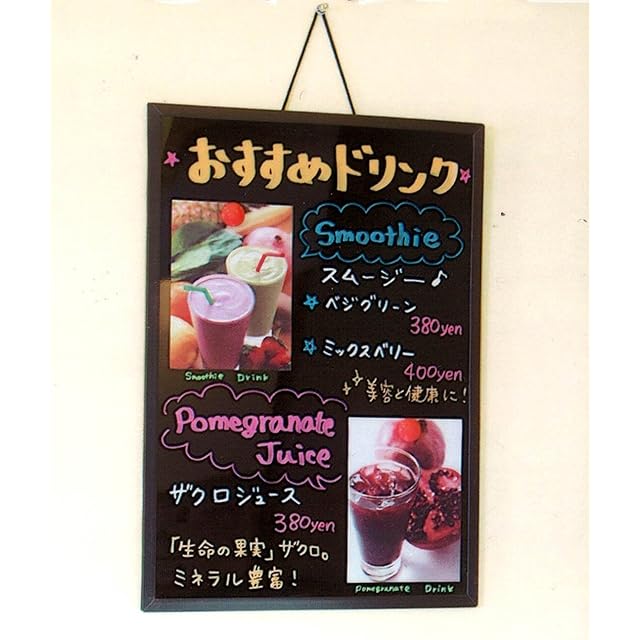 おすすめドリンク
Smoothie
スムージー♪
☆ベジグリーン
380yen
☆ミックスベリー
400yen
美容と健康に!
Smoothie Drink
Pomegranate
Juice
ザクロジュース
380yen
「生命の果実」ザクロ。
ミネラル豊富!
Pomegranate Drink